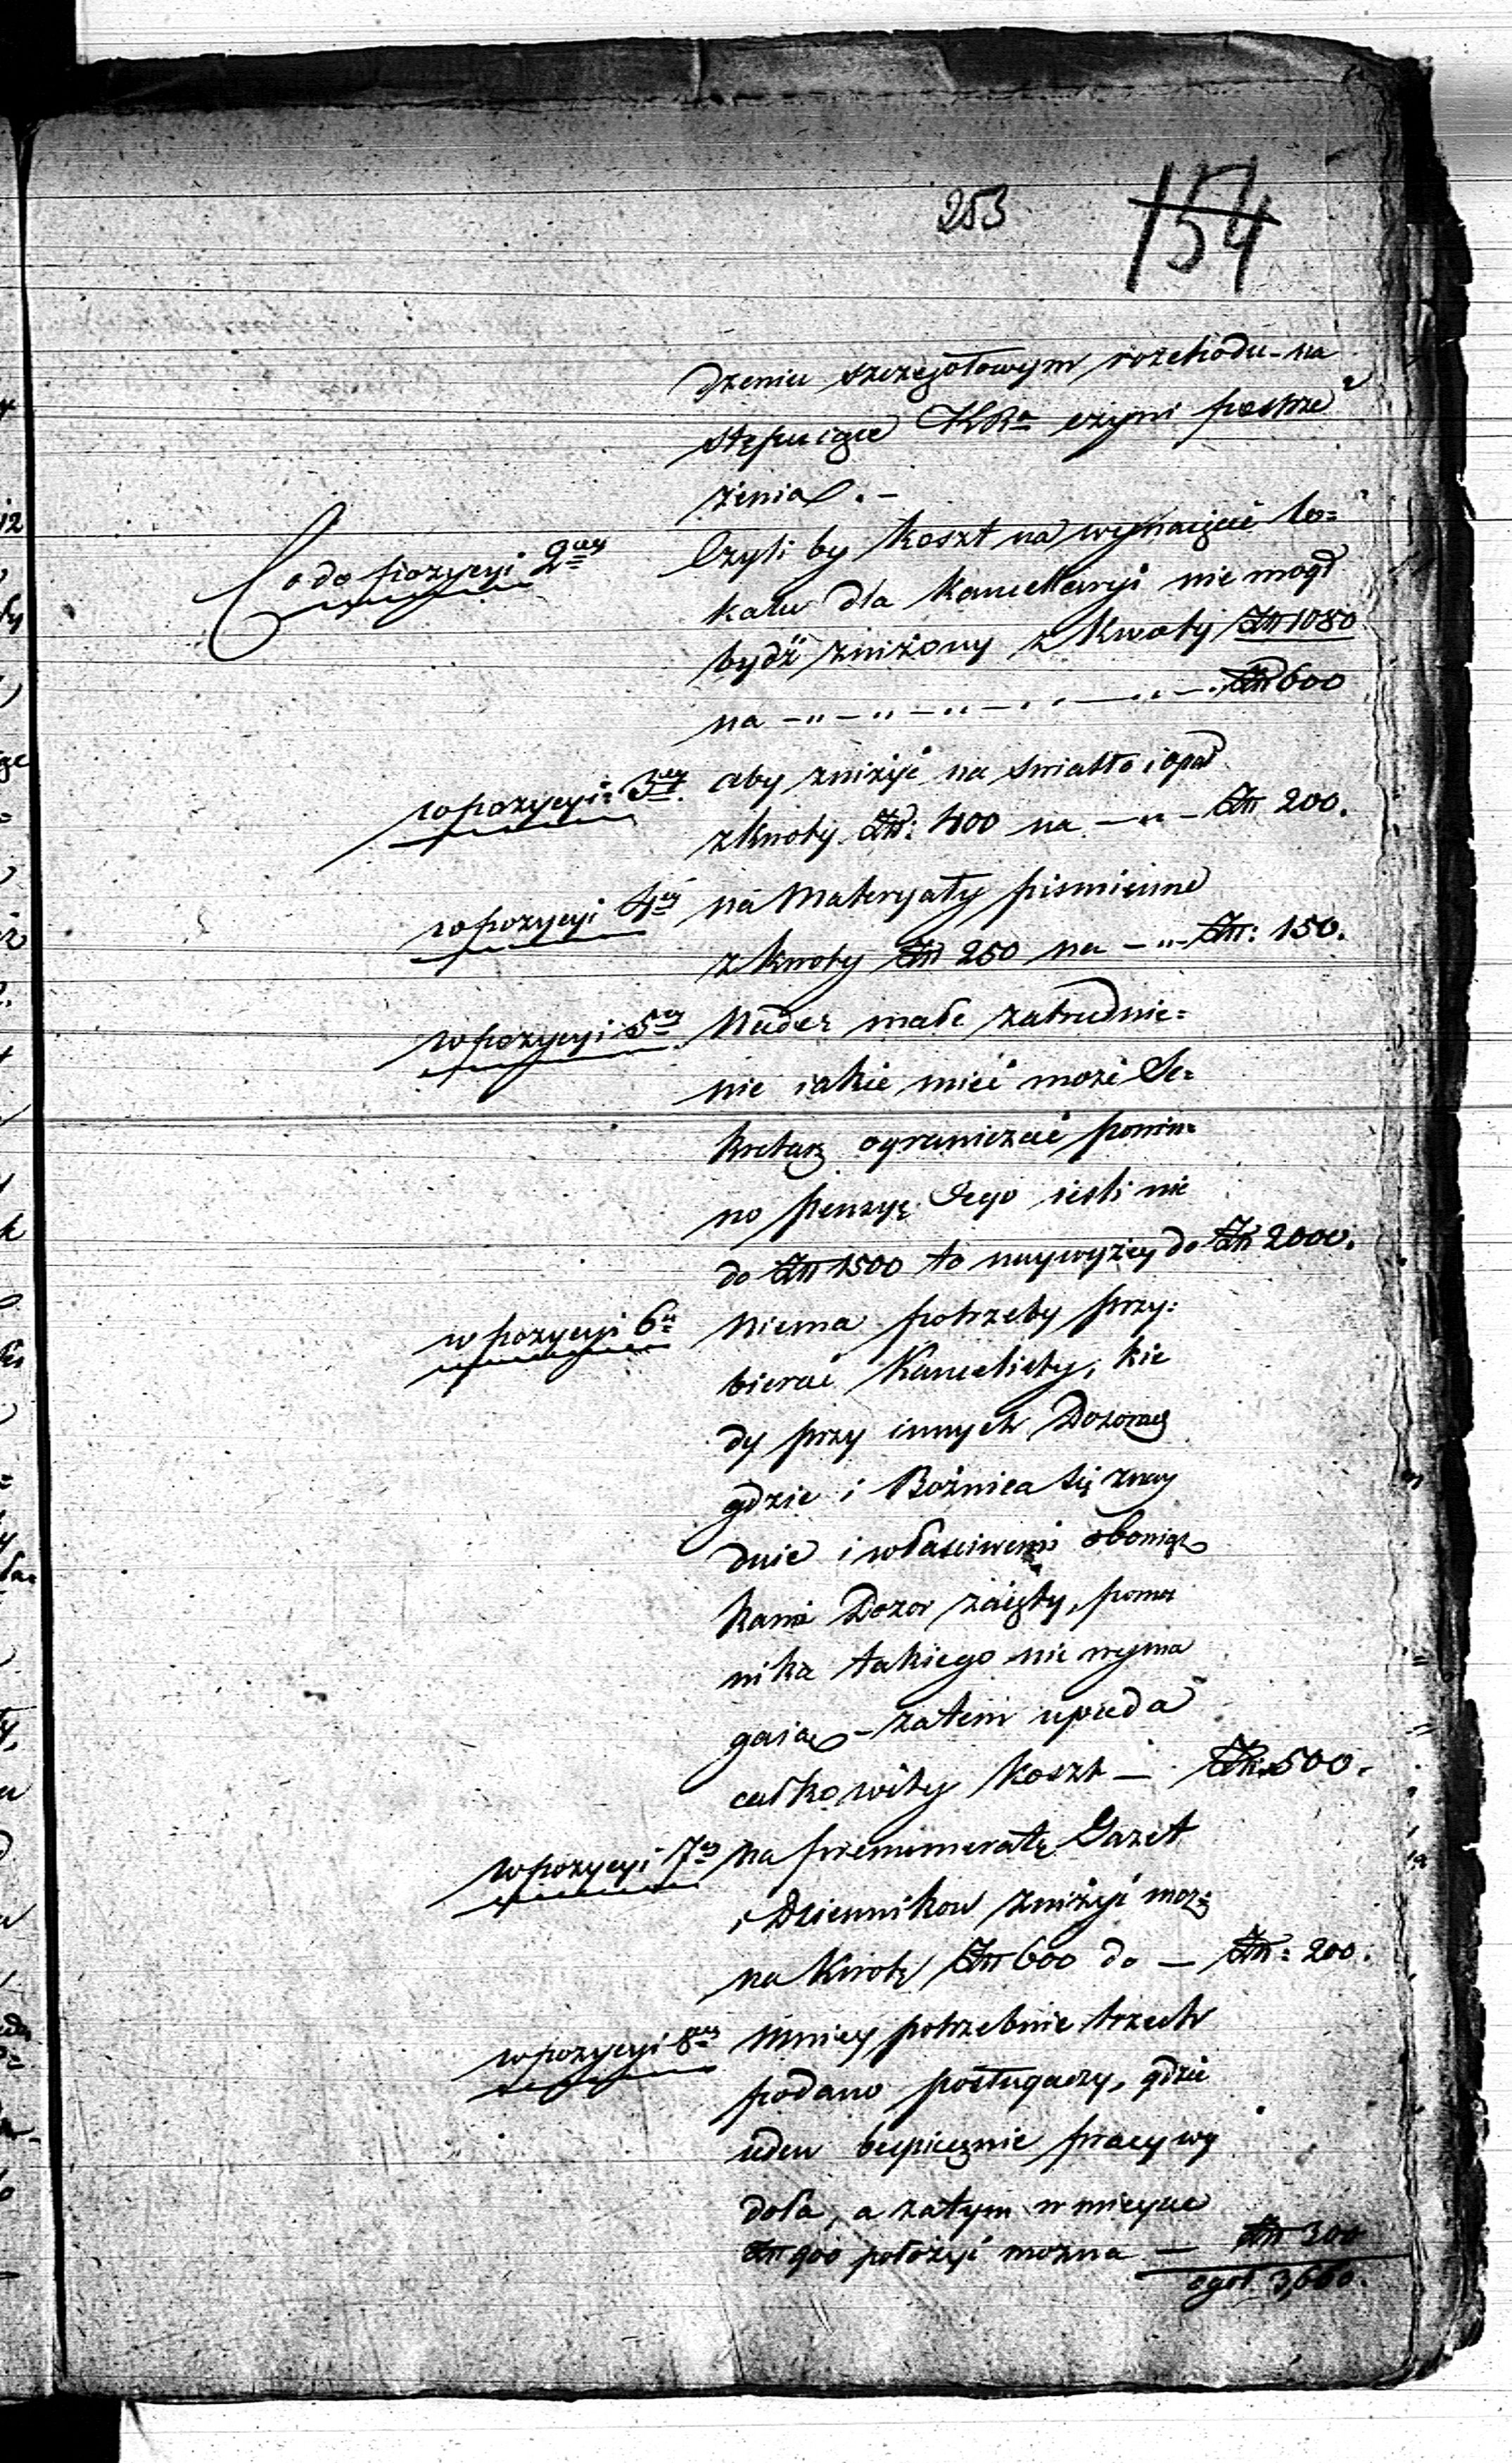 253 154
dzeniu szczegołowym rozchodu na
stępuiące KRa czyni postrze
żenia. -
Co do pozycyi 2giey Czyli by koszt na wynaięcie lo=
kalu dla Kancellaryi nie mogł
bydź zniżony z kwoty Złł 1080
na - „ - „ - „ - „ - „ - Złł 600
w pozycyi 3ey aby zniżyć na swiatło i opał
z kwoty Złł: 400 na - „ - Złł 200.
w pozycyi 4ey na Materyały pismienne
z kwoty Złł 250 na - „ - Złł: 150.
w pozycyi 5ey Nader małe zatrudnie=
nie iakie mieć może Se=
kretarz ograniczać powin=
no pensyę Jego iesli nie
do Złł 1500 to naywyżey do Złł 2000.
w pozycyi 6ey Niema potrzeby przy=
bierać Kancelisty, kie
dy przy innych Dozorach
gdzie i Bożnica się znay
duie i własciwemi obowiąz
kami Dozor zaięty, pomo
nika takiego nie wyma
gaią - zatem upada
całkowity koszt - Złł 500.
w pozycyi 7ey na prenumeratę Gazet
i Dziennikow zniżyć moż=
na Kwotę Złł 600 do - Złł: 200.
w pozycyi 8ey Mniey potrzebnie trzech
podano posługaczy, gdzie
ieden bespiecznie pracy wy
doła, a zatym w mieysce
Złł 900 położyć można - Złł 300
ogoł 3,660.